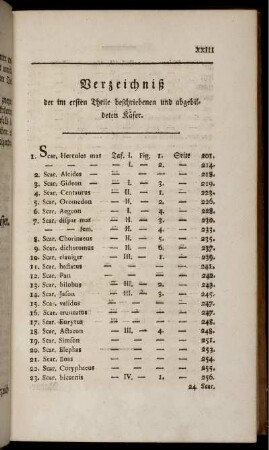 XXIII
Verzeichniß
der im ersten Theile beschriebenen und abgebil-
deten Käfer.
1. Scar. Hercules mas Taf. I. Fig. 1. Seite 201.
— — — I. — 2. — 214.
2. Scar. Alcides — — — — 218.
3. Scar. Gideon — I. — 3. — 219.
4. Scar. Centaurus — II. — 1. — 223.
5. Scar. Oromedon — II. — 2. — 226.
6. Scar. Aegeon — I. — 4. — 228.
7. Scar. dispar mas — II. — 3. — 230.
— fem. — II. — 4. — 230.
8. Scar. Chorinaeus — II. — 5. — 235.
9. Scar. dichotomus — II. — 6. — 237.
10. Scar. claviger — III. — 1. — 239.
11. Scar. hastatus — — — — 241.
12. Scar. Pan — — — — 242.
13. Scar. bilobus — III. — 2. — 243.
14. Scar. Jason — III. — 3. — 245.
15. Scar. validus — — — — 247.
16. Scar. — — — — 248.
17. Scar. Eurytus — — — — 248.
18. Scar. Actaeon — III. — 4. — 248.
19. Scar. Simson — — — — 251.
20. Scar. Elephas — — — — 253.
21. Scar. — — — — 254.
22. Scar. Coryphaeus — — — — 255.
23. Scar. bicornis — IV. — 1. — 256.
24. Scar.